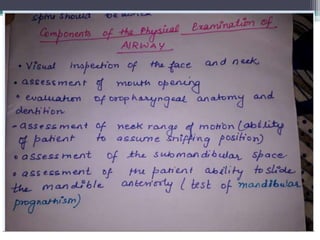 spine should be
Components of the Physical Examination of
AIRWAY
• Visual Inspection of the face and neek,
• assessment of mouth opening
• evaluation of oropharyngeal anatomy and
dentition
- assessment of neek range of motion (ability
of patient to assume sniffing position)
• assessment of the submandibular space
• assessment of the patient ability to slide
the mandible anteriorly (test of mandibular
prognathism)